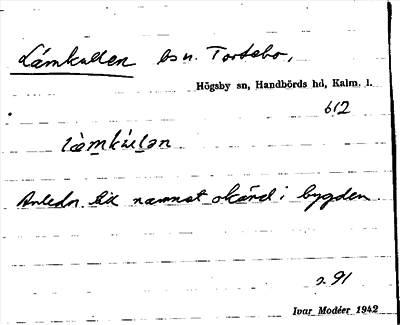 Lámkullen bsn. Tortebo,
Högsby sn, Handbörds hd, Kalm. l.
612
Anledn. till namnet okänd i bygden
s. 91
Ivar Modéer 1942